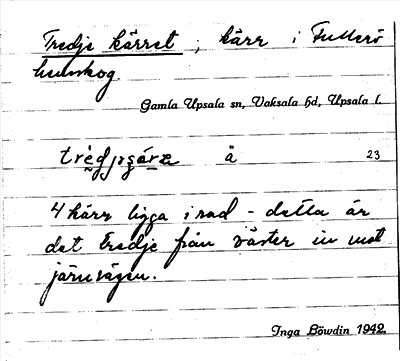 Tredje kärret ; kärr i Fullerö
hemskog.
Gamla Upsala sn, Vaksala hd, Upsala l.
ä 23
4 kärr ligga i rad - detta är
det tredje från väster in mot
järnvägen.
Inga Löwdin 1942.